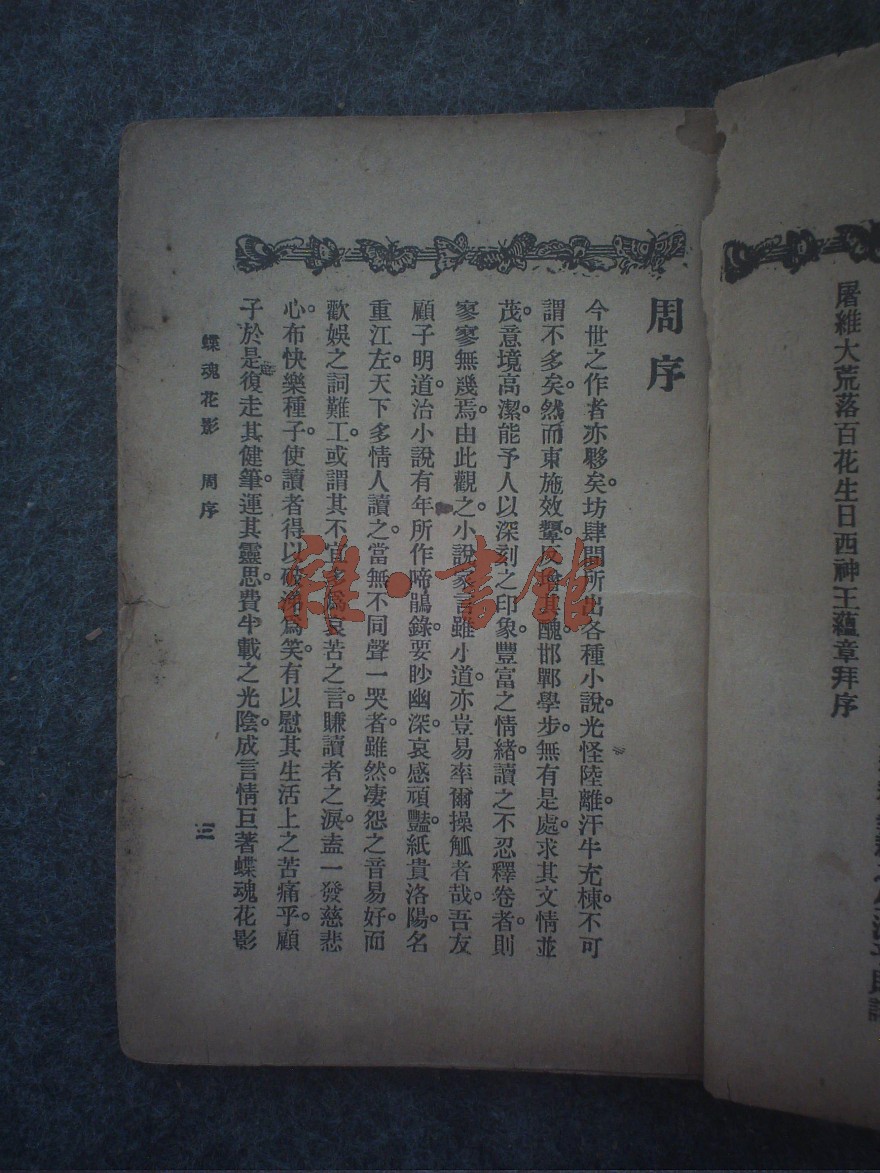 屠維大荒落百花生日西神王蘊章拜序
周序
今世之作者亦夥矣。坊肆間所出各種小說。光怪陸離。汗牛充棟。不可
謂不多矣。然而東施效顰。反增其醜。邯鄲學步。無有是處。求其文情並
茂。意境高潔。能予人以深刻之印象。豐富之情緒。讀之不忍釋卷者。則
寥寥無幾焉。由此觀之。小說家言。雖小道。亦豈易率爾操觚者哉。吾友
顧子明道。治小說有年。所作啼鵑錄。要眇幽深。哀感頑豔。紙貴洛陽。名
重江左。天下多情人讀之。當無不同聲一哭者。雖然。凄怨之音易好。而
歡娛之詞難工。或謂其不宜多爲哀苦之言。賺讀者之淚。盍一發慈悲
心。布快樂種子。使讀者得以破涕爲笑。有以慰其生活上之苦痛乎。顧
子於是復走其健筆。運其靈思。費半載之光陰。成言情巨著蝶魂花影
蝶魂花影 周序
三
雜·書館